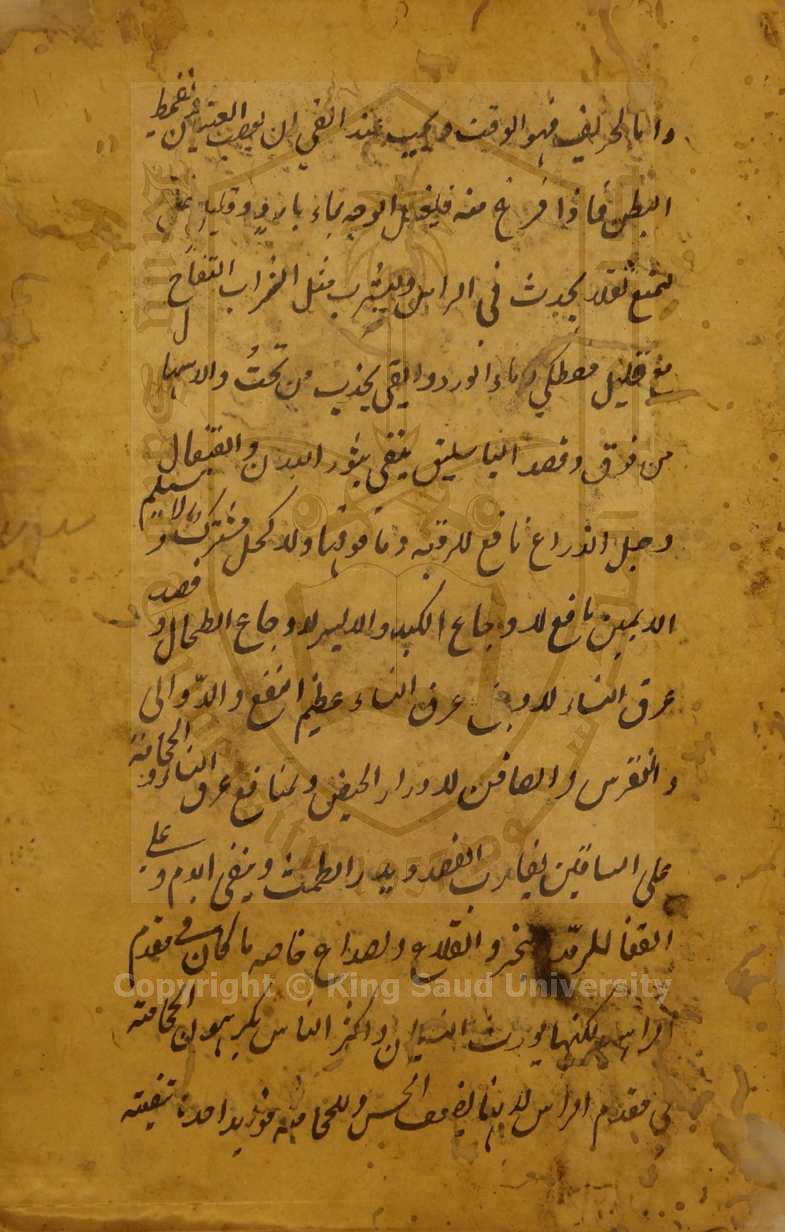 واما الخريف فهو الوقت ويجب عند القي ان يعصب العينان ويقمط
البطن فاذا فرغ منه فليغسل الوجه بماء بارد وقليل خل
ليمنع ثقلا يحدث في الراس وليشرب مثل الشراب التفاح
مع قليل مصطكي وماء الورد والقي يجذب من تحت والاسهال
من فوق وفصد الباسليق ينقي بثور البدن والقيفال
وحبل الذراع نافع للرقبة وما فوقها والاكحل مشترك والاسيلم
الايمن نافع لاوجاع الكبد والايسر لاوجاع الطحال وفصد
عرق النساء لاوجاع عرق النساء عظيم النفع والدوالي
والنقرس والصافن لادرار الحيض ولمنافع عرق النساء والحجامة
على الساقين يقارب الفصد ويدر الطمث وينقي الدم وعلى
القفا للرمد والبخر والقلاع والصداع خاصه ما كان في مقدم
الراس لكنها يورث النسيان واكثر الناس يكرهون الحجامته
في مقدم الراس لانها يضعف الحس وللحجامته فوايد احدها تنقيته
Copyright © King Saud University